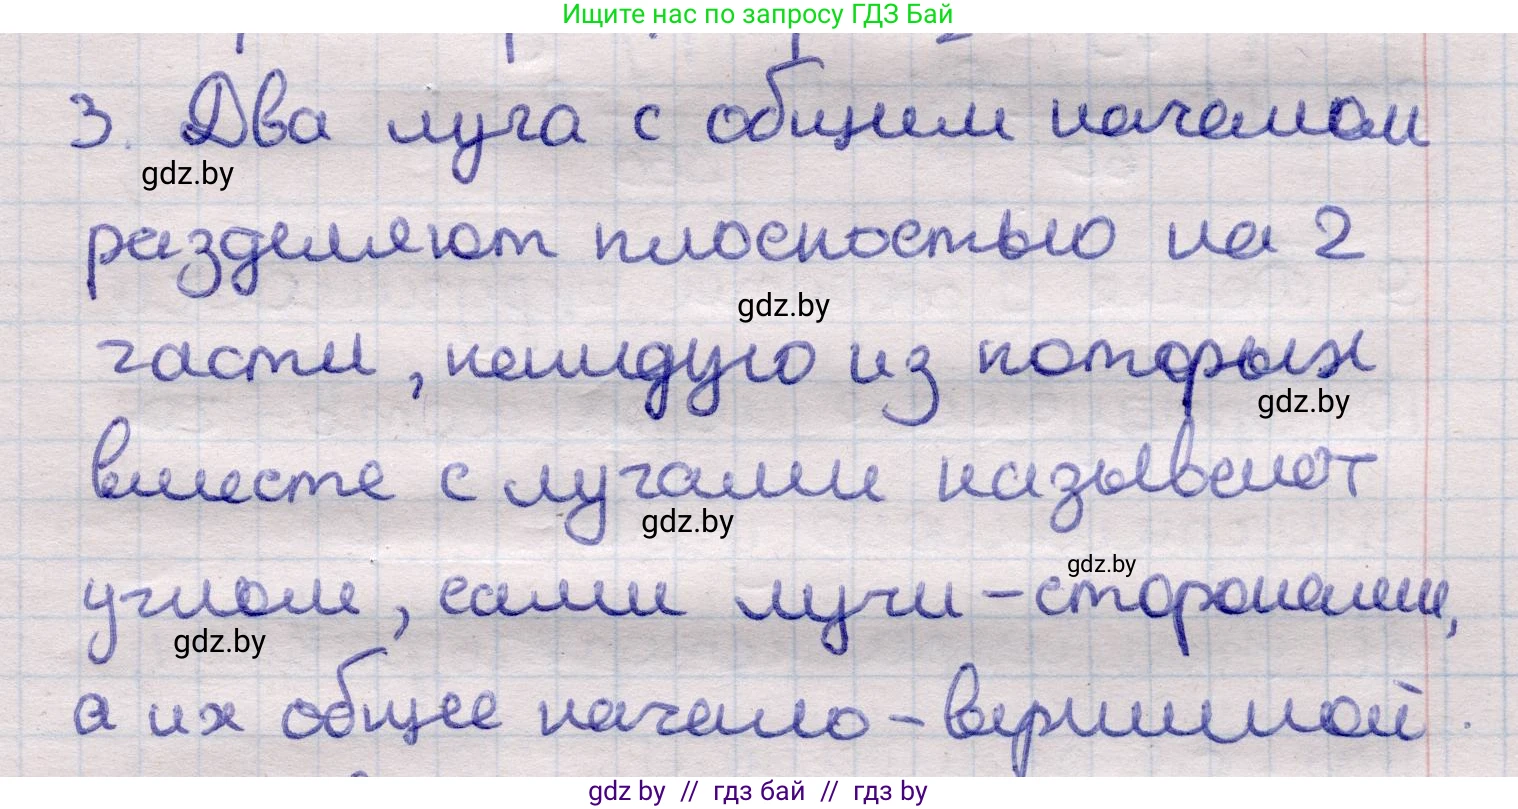 Ищите нас по запросу ГДЗ Бай
3. Два луча с общим началом
gdz.by
разделяют плоскостью на 2
gdz.by
части, каждую из которых
gdz.by
вместе с лучами называют
gdz.by
gdz.by
углом, сами лучи – сторонами,
gdz.by
а их общее начало – вершиной.
gdz.by // гдз бай // гдз by